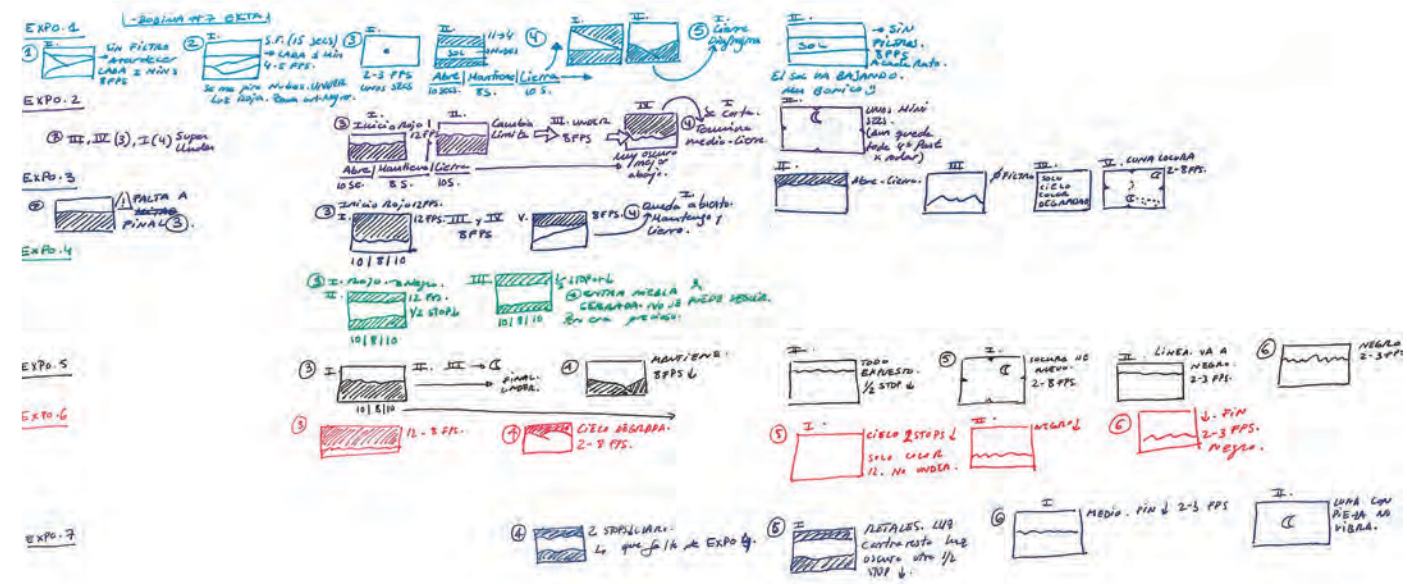 EXPO.1
I.
①
SIN FILTRO
→ Atardecer
CADA 2 MINS
8FPS
②
I.
S.F. (15 SECS)
→ CADA 1 MIN
4-5 FPS.
③
I.
2-3 FPS
UNOS SECS
II.
SOL
11→4
Abre | Mantiene | Cierra
10 secs. 8 S. 10 S.
④
I.
II.
⑤
I.
Cierre
Diafragma
II.
SOL
→ SIN
FILTROS.
8FPS
El Sol VA BAJANDO.
Muy BONICO
EXPO.2
III, IV (3), I (4) Super
Under
③
I.
Inicio Rojo
12FPS
II.
Cambia
Limite
III. UNDER
8FPS
IV
Muy oscuro
mejor
abajo.
Abre | Mantiene | Cierra
10 Sc. 8 S. 10 S.
④
I.
Se corta.
Termina
medio-cierre
UNOS MINI
SECS.
(aun queda
toda 4ª Part
x rodar)
EXPO.3
FALTA A
FINAL ③.
③
Inicio Rojo 12FPS.
I.
12FPS.
III y IV
8FPS
V.
8FPS.
④
I.
Queda abierto.
Mantengo y
Cierro.
10 | 8 | 10
II.
Abre-Cierra.
III
Ø FILTRO
IV.
SOLO
CIELO
COLOR
DEGRADADO
V. LUNA LOCURA
2-8FPS.
EXPO.4
③
I. Rojo → Negro.
II.
12 FPS.
1/2 STOP↓
10 | 8 | 10
III.
1/2 STOP↓
10 | 8 | 10
④ ENTRA NIEBLA &
CERRADA. NO SE PUEDE SEGUIR.
Pero era precioso.
EXPO.5
③
I
10 | 8 | 10
II. III →
FINAL.
UNDER.
④
MANTIENE.
8FPS ↓
II.
TODO
EXPUESTO.
1/2 STOP ↓
⑤
I.
LOCURA DE
NUEVO.
2-8FPS.
II. LINEA. VA A
NEGRO.
2-3 FPS.
⑥
NEGRO
2-3FPS
EXPO.6
③
12-8 FPS.
④
CIELO DEGRADA.
2-8 FPS.
⑤
I.
CIELO 2 STOPS ↓
SOLO COLOR
12. NO UNDER.
II.
NEGRO↓
⑥
I.
↓. FIN
2-3 FPS.
Negro.
EXPO.7
④
2 STOPS↓
↳ que falta de EXPO 4.
⑤
I
RETALES. LUZ
Contrarresto Luz
oscuro otro 1/2
STOP ↓.
⑥
I
MEDIO. FIN ↓ 2-3 FPS
II.
LUNA CON
PIEZA NO
VIBRA.